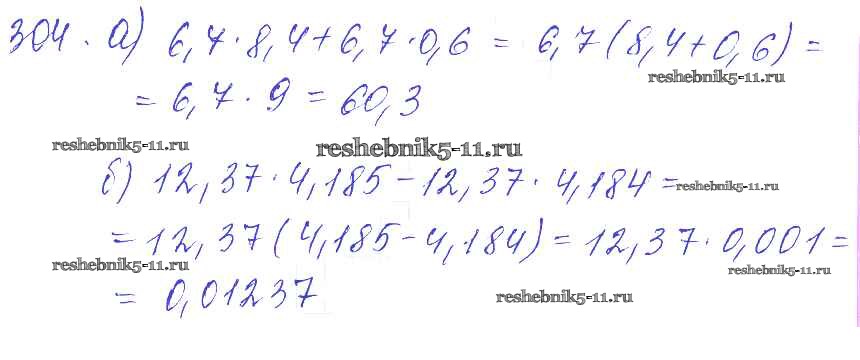 304. а) 6,7·8,4+6,7·0,6 = 6,7(8,4+0,6) =
reshebnik5-11.ru
= 6,7·9 = 60,3
reshebnik5-11.ru
reshebnik5-11.ru
б) 12,37·4,185-12,37·4,184=
reshebnik5-11.ru
=12,37(4,185-4,184)=12,37·0,001=
reshebnik5-11.ru
reshebnik5-11.ru
= 0,01237
reshebnik5-11.ru